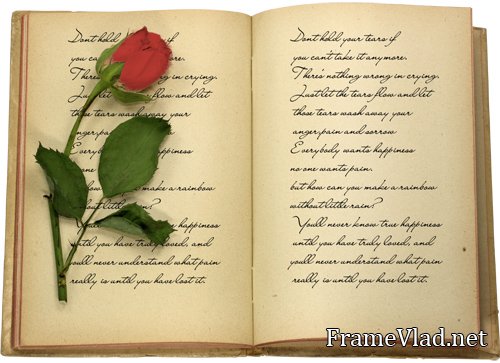 Dont hold your tears if
you cant take it anymore.
There's nothing wrong in crying.
Just let the tears flow and let
those tears wash away your
anger,pain and sorrow
Everybody wants happiness
no one wants pain.
but how can you make a rainbow
without little rain?
You'll never know true happiness
until you have truly loved, and
youll never understand what pain
really is until you have lost it.
Dont hold
you ca
There's ng in crying.
Just le flow and let
those tears wash away your
anger,pain
Every appiness
make a rainbow
without little
happiness
until you have truly loved, and
youll never understand what pain
really is until you have lost it.
FrameVlad.net